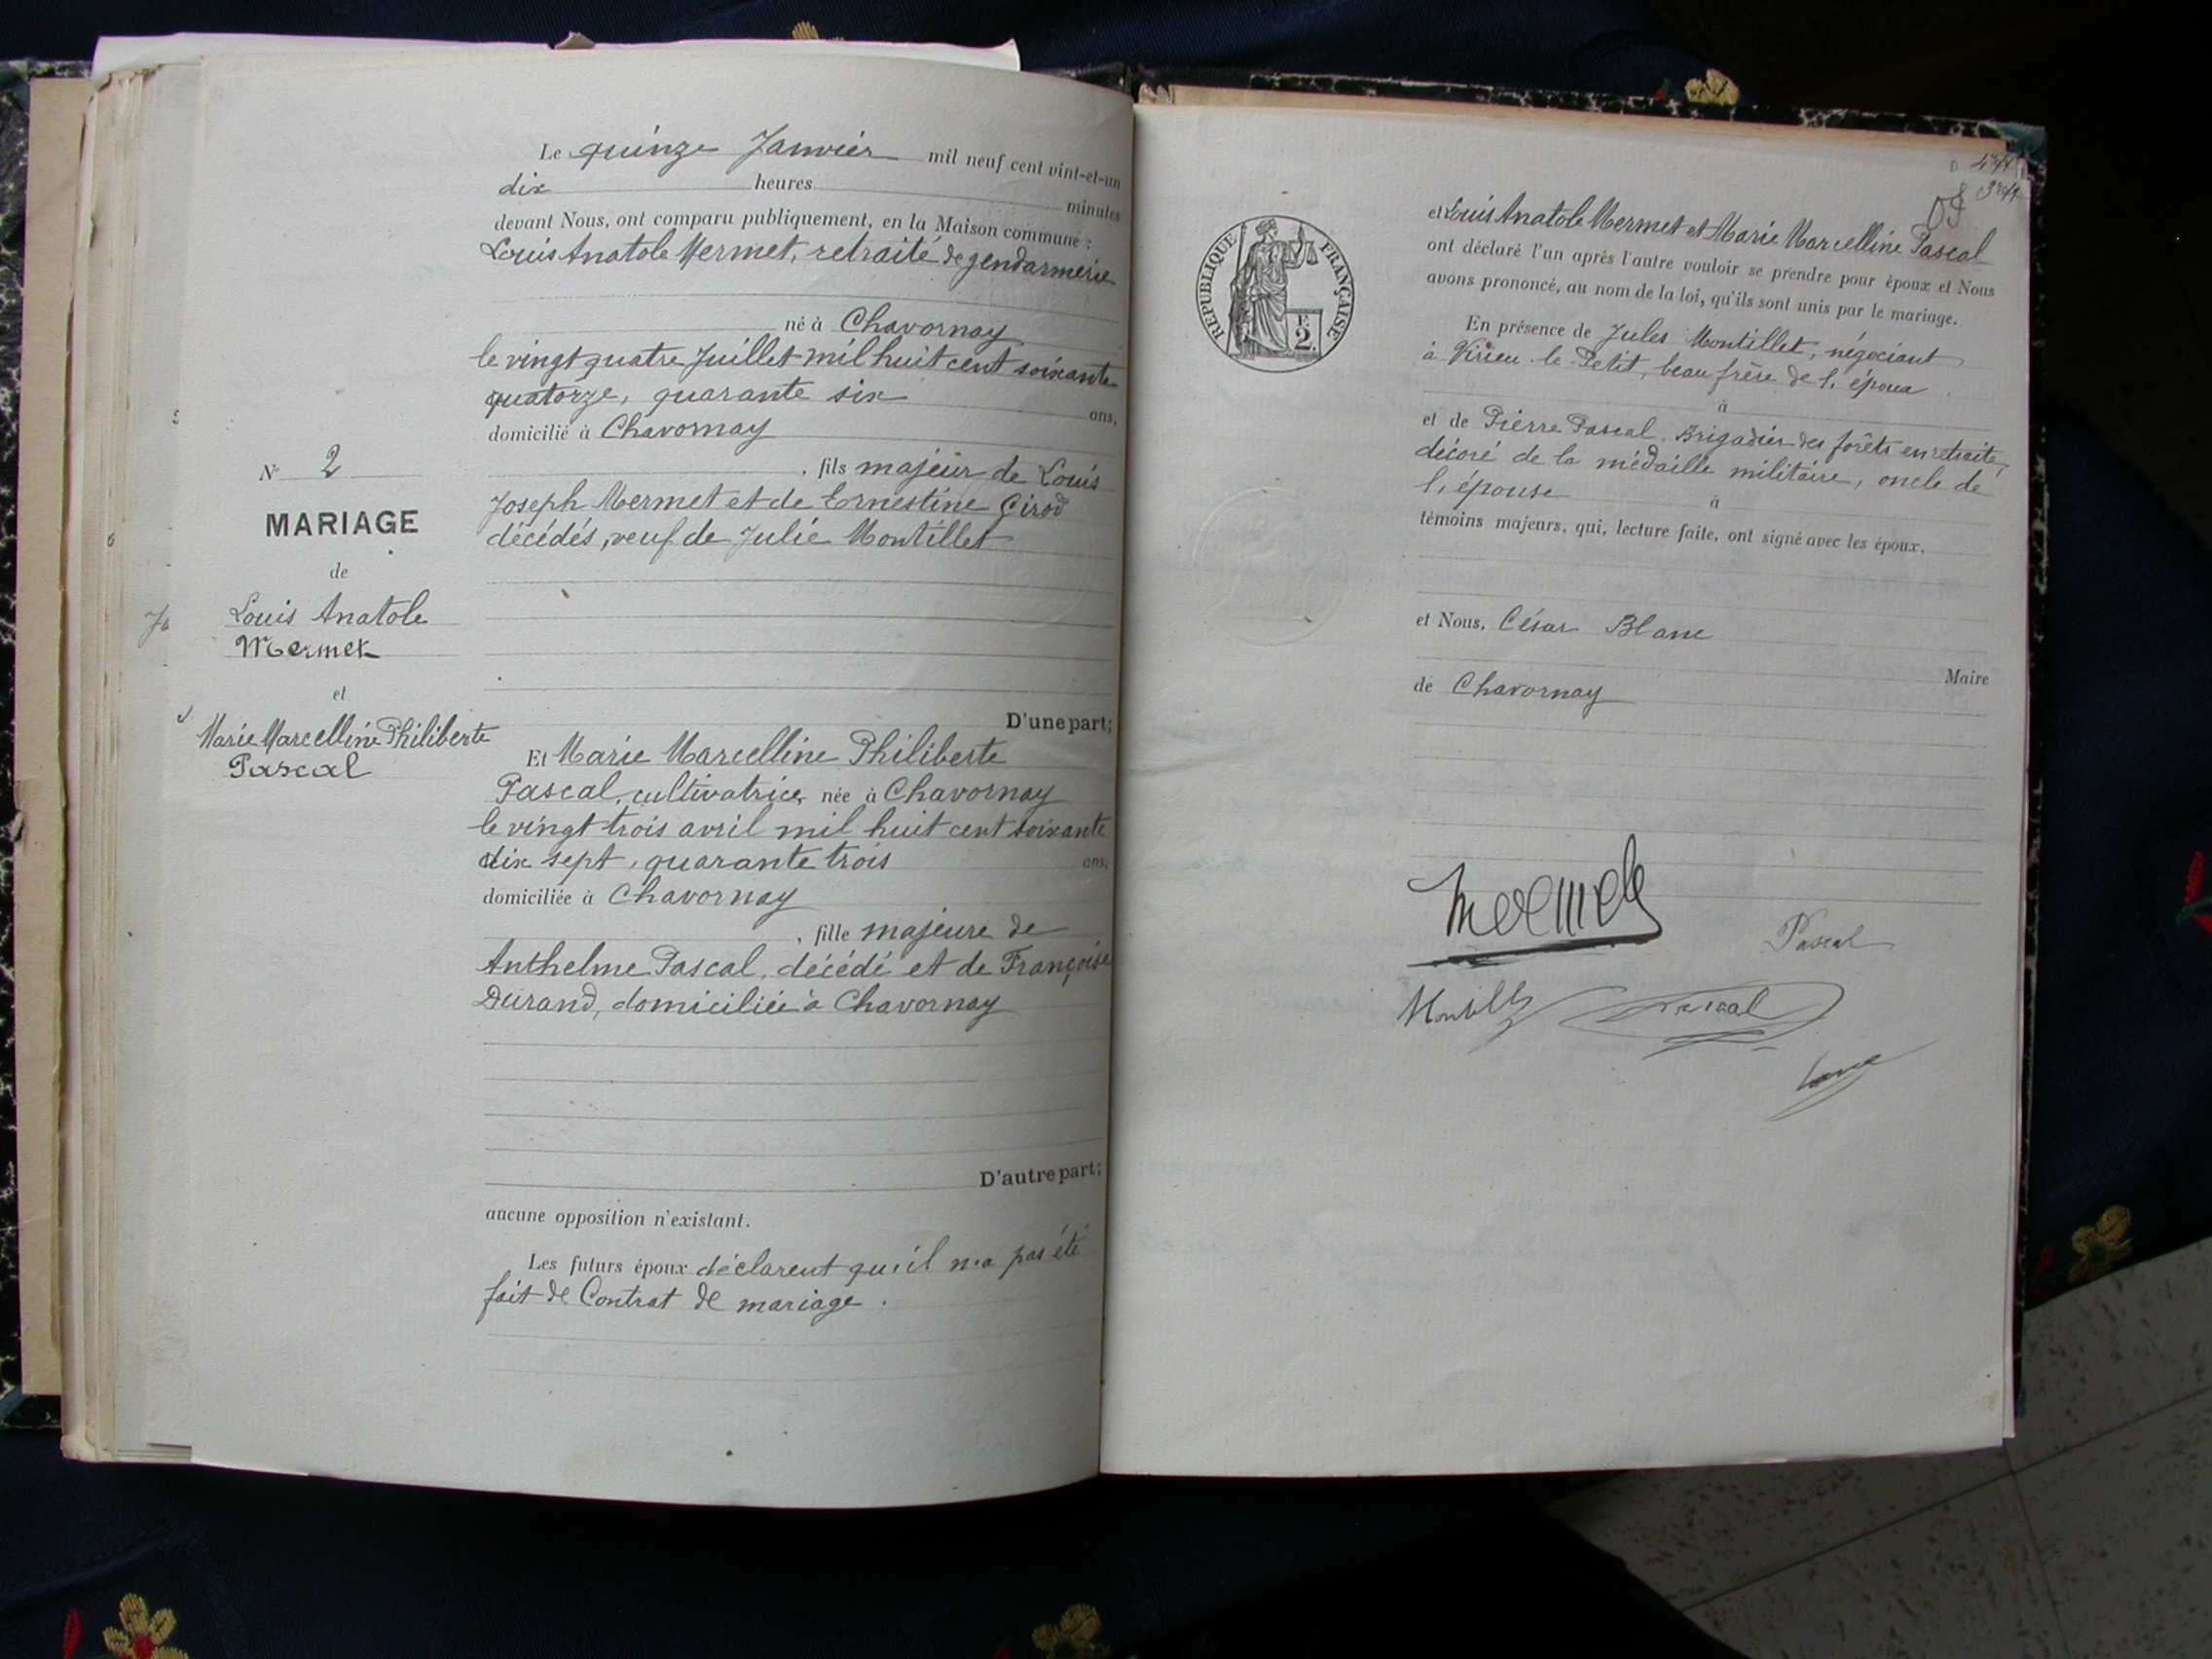 Le quinze Janvier mil neuf cent vint-et-un
dix heures minutes
devant Nous, ont comparu publiquement, en la Maison commune :
Louis Anatole Mermet, retraité de gendarmerie
né à Chavornay
le vingt quatre Juillet mil huit cent soixante
quatorze, quarante six ans,
domicilié à Chavornay
, fils majeur de Louis
Joseph Mermet et de Ernestine Girod
décédés, veuf de Julie Montillet
D'une part;
Et Marie Marcelline Philiberte
Pascal, cultivatrice, née à Chavornay
le vingt trois avril mil huit cent soixante
dix sept, quarante trois ans,
domiciliée à Chavornay
, fille majeure de
Anthelme Pascal, décédé et de Françoise
Durand, domiciliée à Chavornay
D'autre part;
aucune opposition n'existant.
Les futurs époux déclarent qu'il n'a pas été
fait de Contrat de mariage.
N° 2
MARIAGE
de
Louis Anatole
Mermet
et
Marie Marcelline Philiberte
Pascal
RÉPUBLIQUE FRANÇAISE
F
2
et Louis Anatole Mermet et Marie Marcelline Pascal
ont déclaré l'un après l'autre vouloir se prendre pour époux et Nous
avons prononcé, au nom de la loi, qu'ils sont unis par le mariage.
En présence de Jules Montillet, négociant
à Virieu-le-Petit, beau frère de l'époux
à
et de Pierre Pascal, Brigadier des forêts en retraite,
décoré de la médaille militaire, oncle de
l'épouse à
témoins majeurs, qui, lecture faite, ont signé avec les époux,
et Nous, César Blanc
Maire
de Chavornay
Mermet
Pascal
Pascal